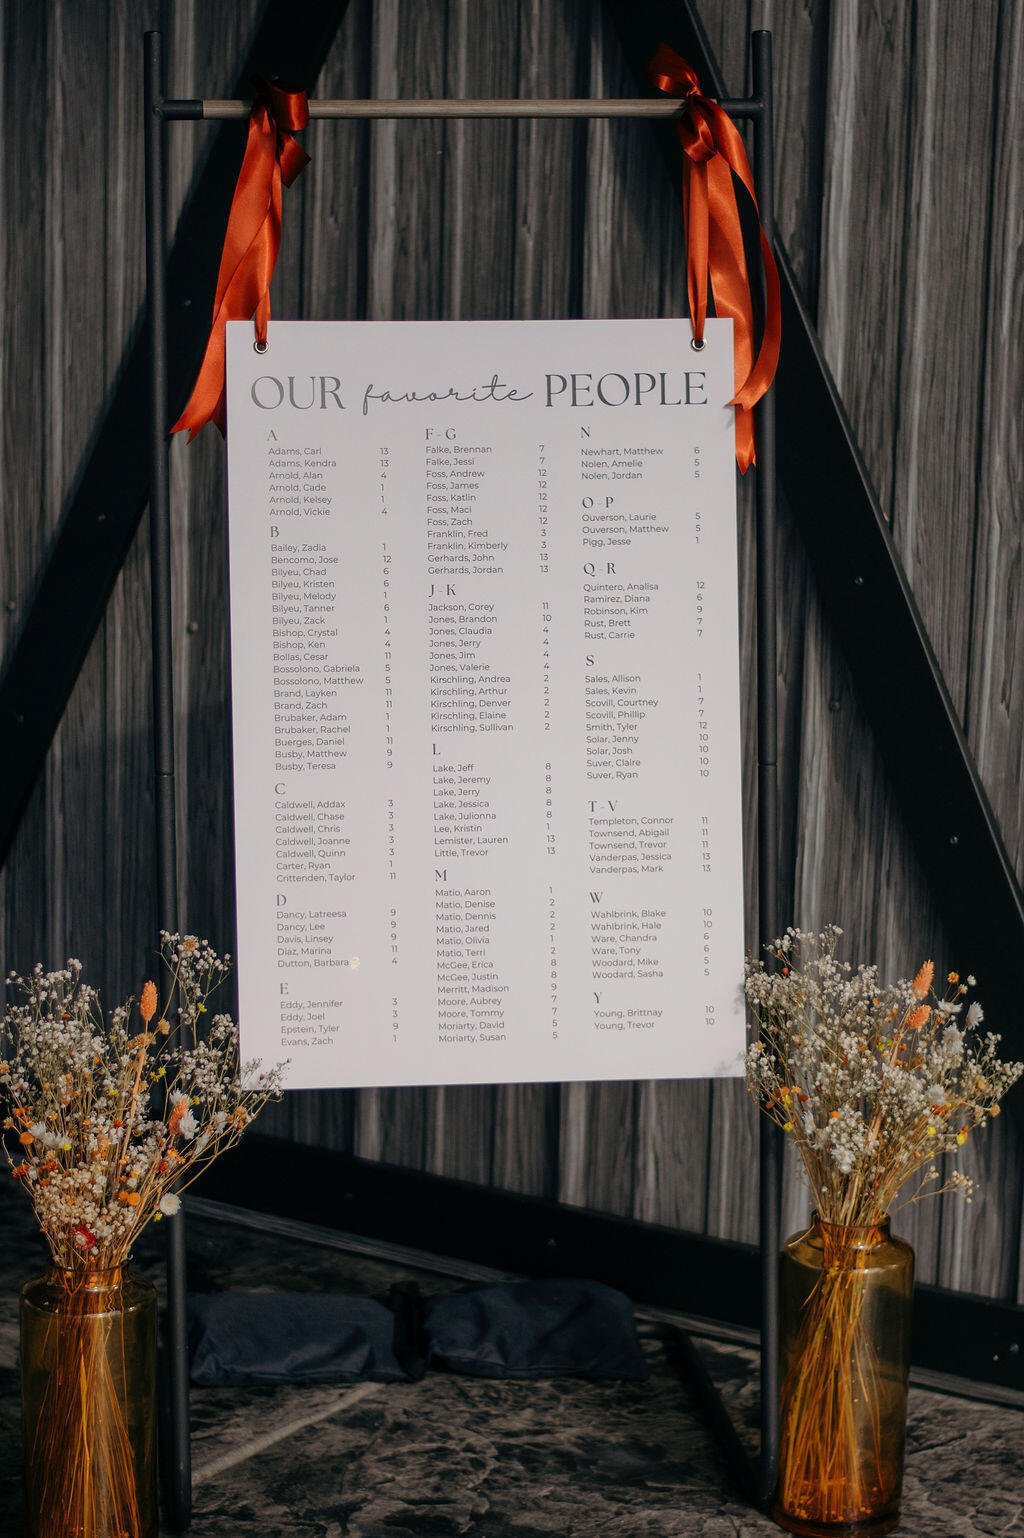 OUR favorite PEOPLE
A
Adams, Carl 13
Adams, Kendra 13
Arnold, Alan 4
Arnold, Cade 1
Arnold, Kelsey 1
Arnold, Vickie 4
B
Bailey, Zadia 1
Bencomo, Jose 12
Bilyeu, Chad 6
Bilyeu, Kristen 6
Bilyeu, Melody 1
Bilyeu, Tanner 6
Bilyeu, Zack 1
Bishop, Crystal 4
Bishop, Ken 4
Bollas, Cesar 11
Bossolono, Gabriela 5
Bossolono, Matthew 5
Brand, Layken 11
Brand, Zach 11
Brubaker, Adam 1
Brubaker, Rachel 1
Buerges, Daniel 11
Busby, Matthew 9
Busby, Teresa 9
C
Caldwell, Addax 3
Caldwell, Chase 3
Caldwell, Chris 3
Caldwell, Joanne 3
Caldwell, Quinn 3
Carter, Ryan 1
Crittenden, Taylor 11
D
Dancy, Latreesa 9
Dancy, Lee 9
Davis, Linsey 9
Diaz, Marina 11
Dutton, Barbara 4
E
Eddy, Jennifer 3
Eddy, Joel 3
Epstein, Tyler 9
Evans, Zach 1
F - G
Falke, Brennan 7
Falke, Jessi 7
Foss, Andrew 12
Foss, James 12
Foss, Katlin 12
Foss, Maci 12
Foss, Zach 12
Franklin, Fred 3
Franklin, Kimberly 3
Gerhards, John 13
Gerhards, Jordan 13
J - K
Jackson, Corey 11
Jones, Brandon 10
Jones, Claudia 4
Jones, Jerry 4
Jones, Jim 4
Jones, Valerie 4
Kirschling, Andrea 2
Kirschling, Arthur 2
Kirschling, Denver 2
Kirschling, Elaine 2
Kirschling, Sullivan 2
L
Lake, Jeff 8
Lake, Jeremy 8
Lake, Jerry 8
Lake, Jessica 8
Lake, Julionna 8
Lee, Kristin 1
Lemister, Lauren 13
Little, Trevor 13
M
Matio, Aaron 1
Matio, Denise 2
Matio, Dennis 2
Matio, Jared 2
Matio, Olivia 1
Matio, Terri 2
McGee, Erica 8
McGee, Justin 8
Merritt, Madison 9
Moore, Aubrey 7
Moore, Tommy 7
Moriarty, David 5
Moriarty, Susan 5
N
Newhart, Matthew 6
Nolen, Amelie 5
Nolen, Jordan 5
O - P
Ouverson, Laurie 5
Ouverson, Matthew 5
Pigg, Jesse 1
Q - R
Quintero, Analisa 12
Ramirez, Diana 6
Robinson, Kim 9
Rust, Brett 7
Rust, Carrie 7
S
Sales, Allison 1
Sales, Kevin 1
Scovill, Courtney 7
Scovill, Phillip 7
Smith, Tyler 12
Solar, Jenny 10
Solar, Josh 10
Suver, Claire 10
Suver, Ryan 10
T - V
Templeton, Connor 11
Townsend, Abigail 11
Townsend, Trevor 11
Vanderpas, Jessica 13
Vanderpas, Mark 13
W
Wahlbrink, Blake 10
Wahlbrink, Hale 10
Ware, Chandra 6
Ware, Tony 6
Woodard, Mike 5
Woodard, Sasha 5
Y
Young, Brittnay 10
Young, Trevor 10